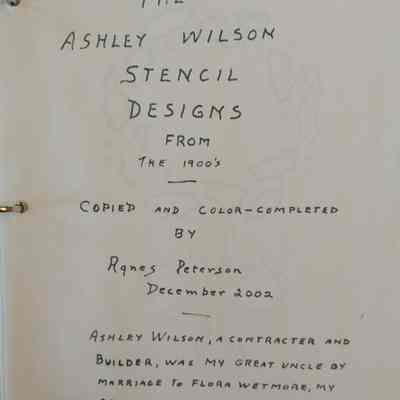 THE
ASHLEY WILSON
STENCIL
DESIGNS
FROM
THE 1900's
COPIED AND COLOR-COMPLETED
BY
Agnes Peterson
December 2002
ASHLEY WILSON, A CONTRACTER AND
BUILDER, WAS MY GREAT UNCLE BY
MARRIAGE TO FLORA WETMORE, MY